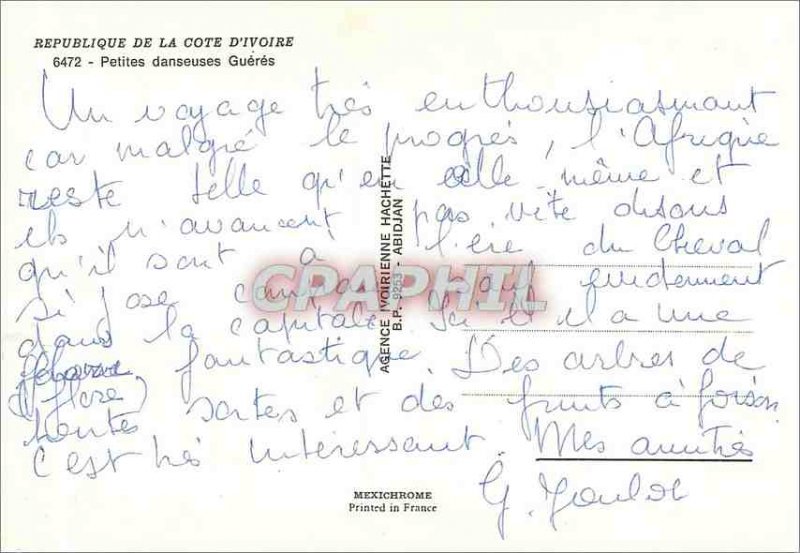 REPUBLIQUE DE LA COTE D'IVOIRE
6472 - Petites danseuses Guérés
Un voyage très enthousiasmant
car malgré le progrès, l'Afrique
reste telle qu'en elle même et
ils n'avancent pas vite disons
qu'il sont à l'ère du cheval
si j'ose sauf evidemment
dans la capitale. Ici il y a une
fantastique. Des arbres de
(flore)
toutes sortes et des fruits à foison
c'est très intéressant. Mes amitiés
G.
AGENCE IVOIRIENNE HACHETTE
B.P. 9253 - ABIDJAN
CPAPHIL
MEXICHROME
Printed in France